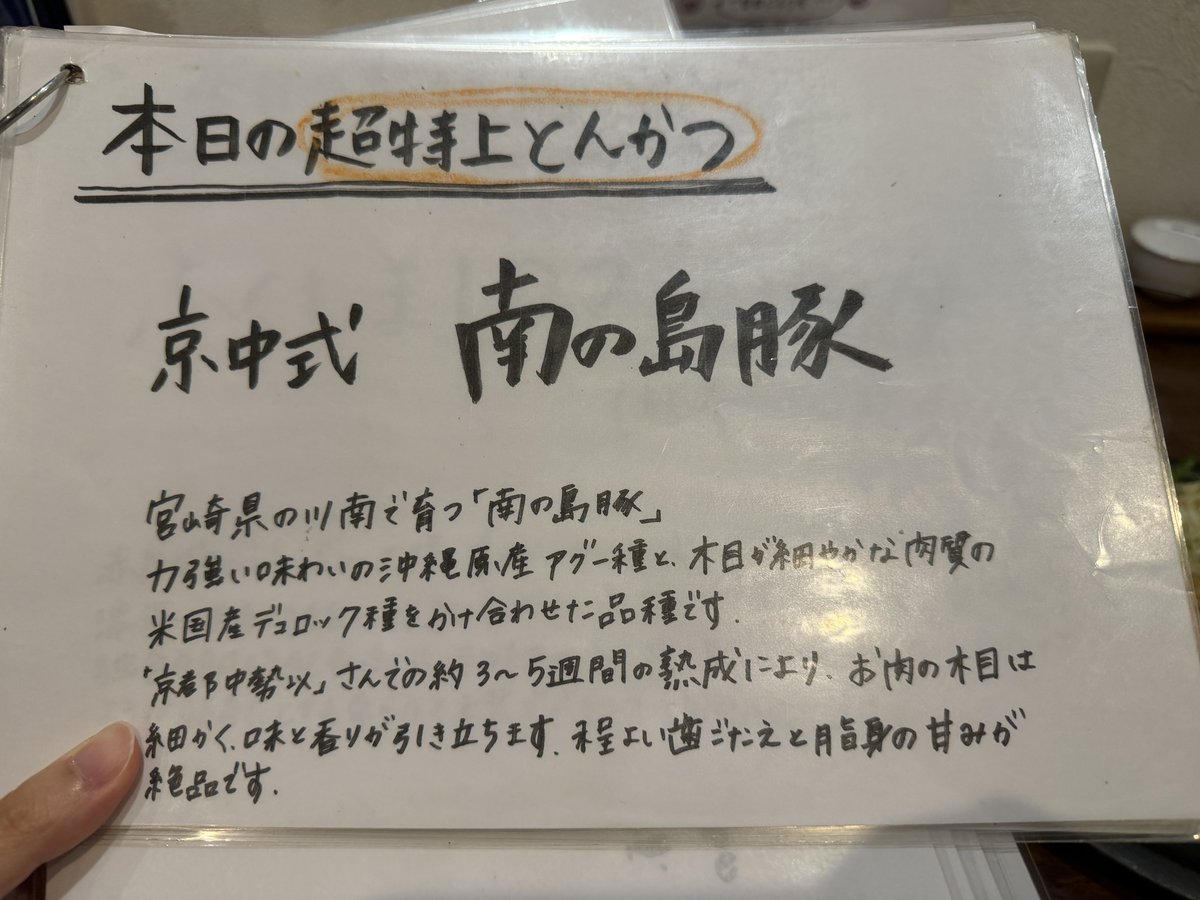 本日の超特上とんかつ
京中式 南の島豚
宮崎県の川南で育つ「南の島豚」
力強い味わいの沖縄原産アグー種と、木目が細やかな肉質の
米国産デュロック種をかけ合わせた品種です.
「京都中勢以」さんでの約3〜5週間の熟成により、お肉の木目は
細かく、味と香りが引き立ちます. 程よい歯ごたえと脂身の甘みが
絶品です.